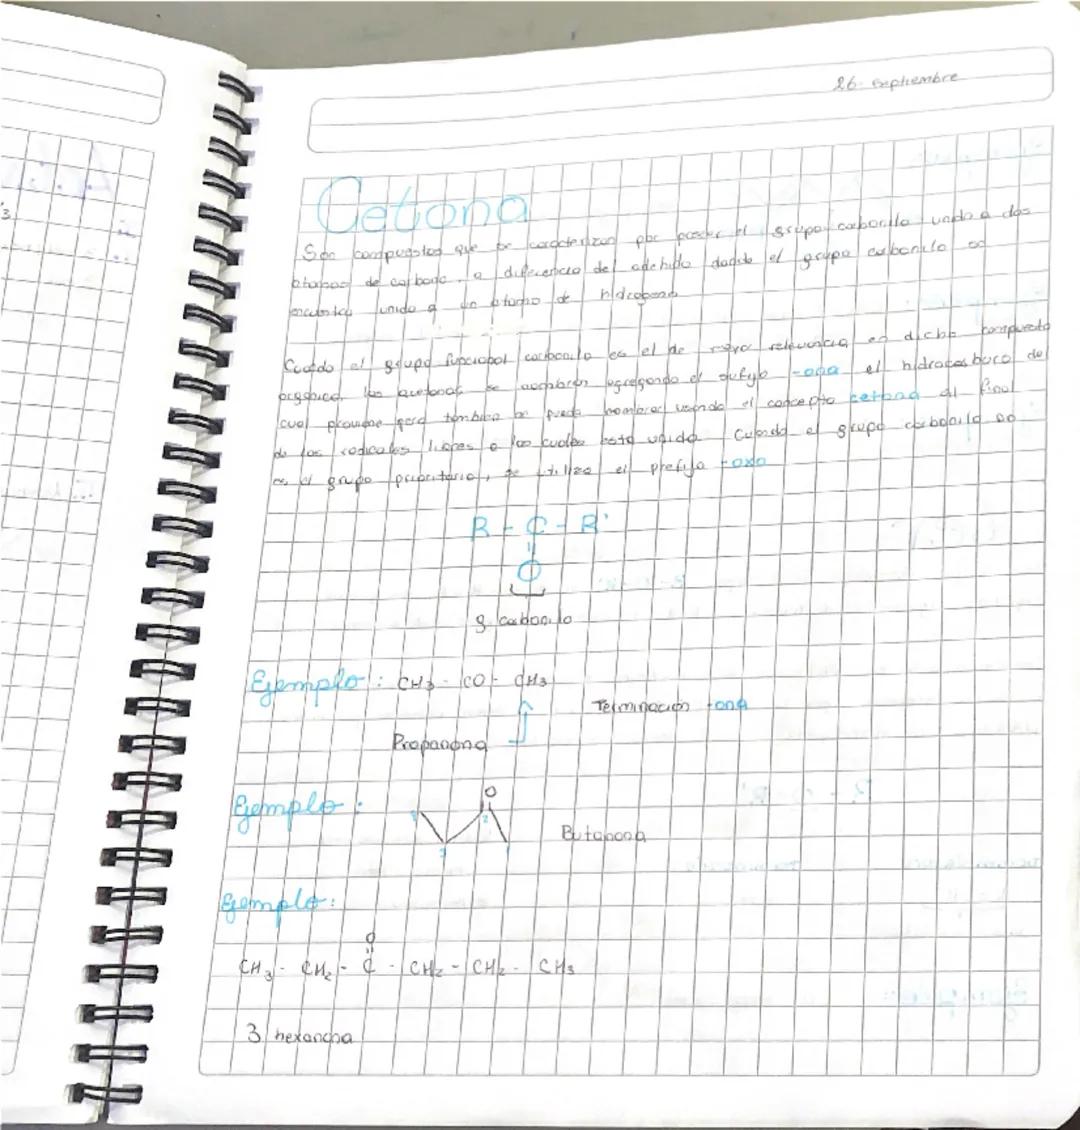 26. septiembre
Cetona
Son compuestos que se caracterizan por poseer el grupo carbonilo unido a dos
átomos de carbono, a diferencia del adehído donde el grupo carbonilo se
encuentra unido a un átomo de hidrogeno
Cuando el grupo funcional carbonilo es el de mayor relevancia en dicho compuesto
organico, las cetonas se nombran agregando el sufijo -ona el hidrocarburo del
cual proviene pero tambien se puede nombrar usando el concepto cetona al final
de los radicales a los cuales esta unido Cuando el grupo carbonilo no
es el grupo prioritario, se utiliza el prefijo -oxo
R - C - R'
O
g. carbonilo
Ejemplo: CH3 - CO - CH3
Terminación -ona
Propanona
Ejemplo:
O
2
3
1
Butanona
Ejemplo:
O
CH3 - CH2 - C - CH2 - CH2 - CH3
3 hexanona